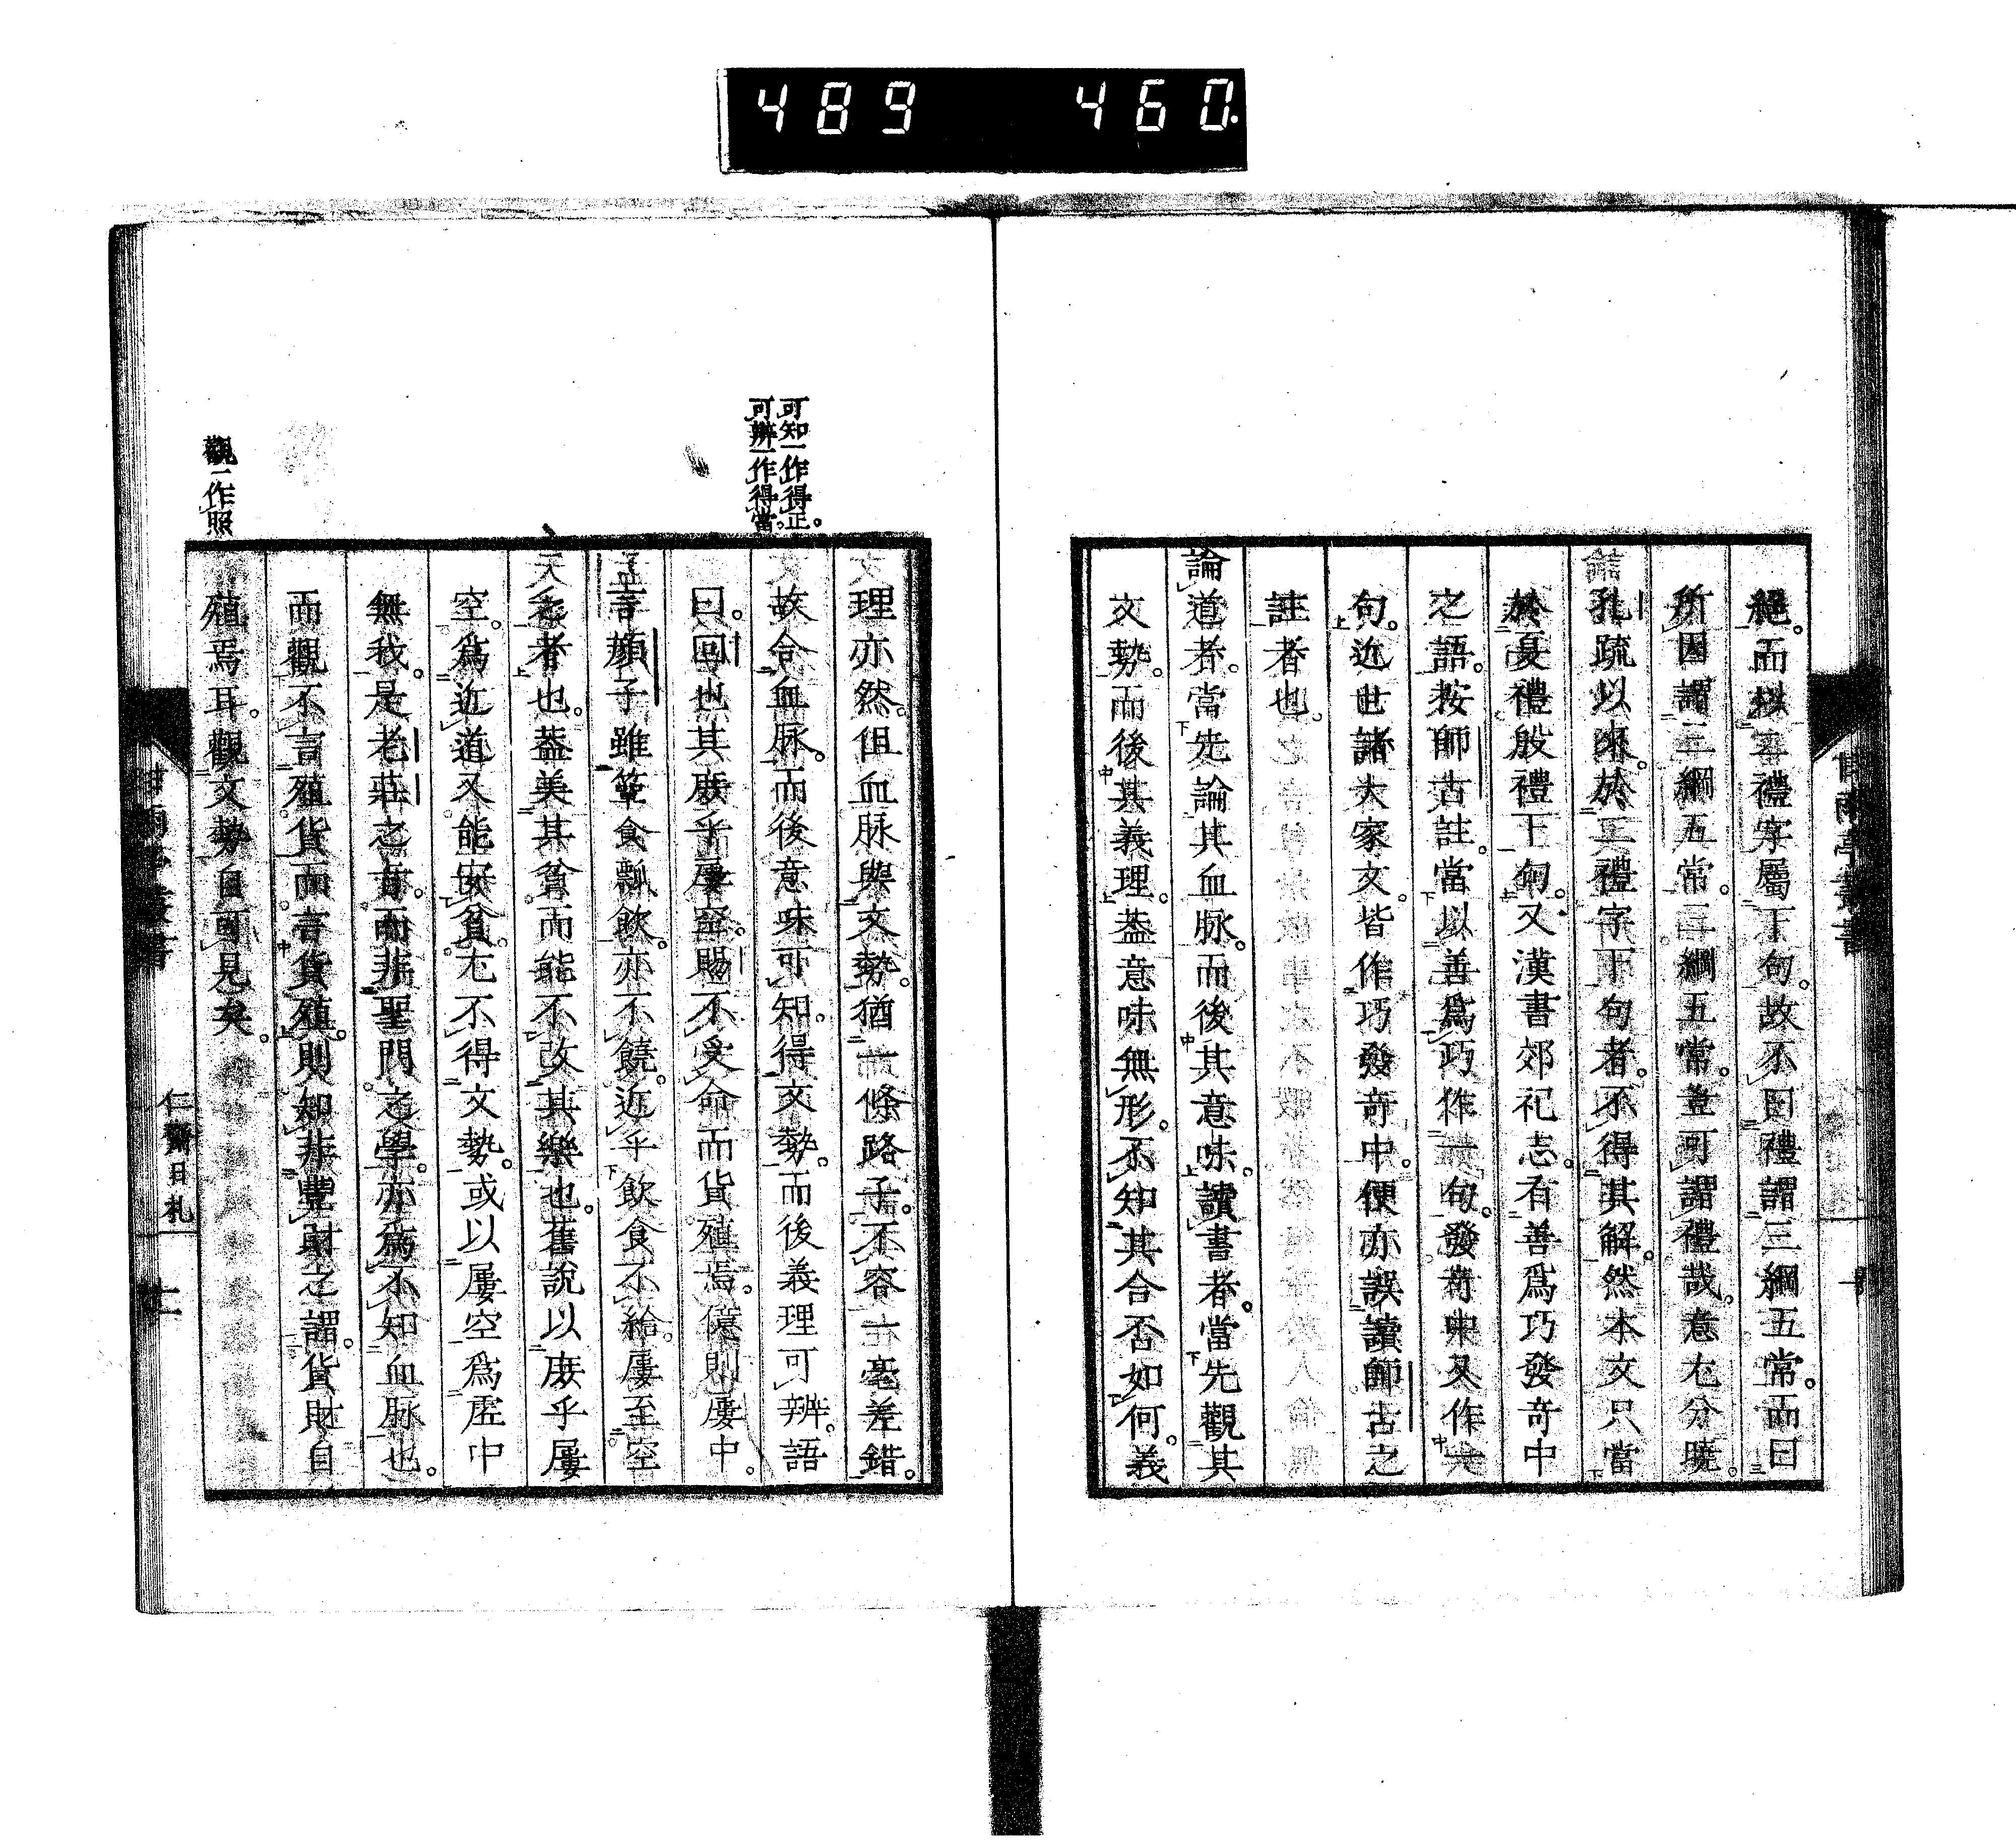 489 460.
絕。而以禮字屬下句。故不曰禮謂三綱五常。而曰
所因謂三綱五常。三綱五常。豈可謂禮哉。意尤分曉。
孔疏以來。於二禮字下句者。不得其解。然本文只當
於夏禮殷禮下句。又漢書郊祀志。有善爲巧發奇中
之語。按師古註。當以善爲巧作一句。發奇中又作一
句。近世諸大家文。皆作巧發奇中。便亦誤讀師古之
註者也。
論道者。當先論其血脉。而後其意味。讀書者。當先觀其
文勢。而後其義理。蓋意味無形。不知其合否如何。義
可知一作得正。
可辨一作得當。
觀一作照
理亦然。但血脉與文勢。猶一條路子。不容一毫差錯。
故合血脉。而後意味可知。得文勢。而後義理可辨。語
曰。回也其庶乎屢空。賜不受命而貨殖焉。億則屢中。
言顏子雖簞食瓢飲。亦不饒。近乎飲食不給。屢至空
乏者也。蓋美其貧而能不改其樂也。舊說以庶乎屢
空。爲近道又能安貧。尤不得文勢。或以屢空爲虛中
無我。是老莊之言。而非聖門之學。亦爲不知血脉也。
而觀不言殖貨而言貨殖。則知非豐財之謂。貨財自
殖焉耳。觀文勢自可見矣。
甘雨亭叢書
仁齋日札